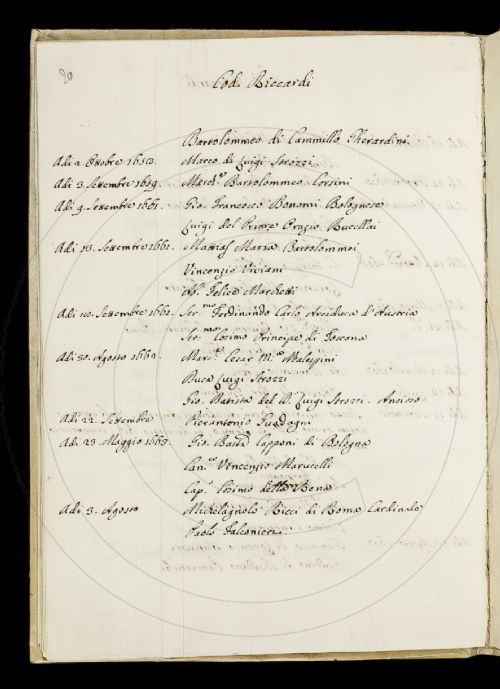 20
Cod. Riccardi
Bartolommeo di Cammillo Gherardini
Adi 2. Ottobre 1650. Marco di Luigi Strozzi
Adi 3. Settembre 1659. March.se Bartolommeo Corsini
Adi 9. Settembre 1661. Gio. Francesco Bonomi Bolognese
Luigi del Priore Orazio Rucellai
Adi 13. Settembre 1661. Mattias Maria Bartolommei
Vincenzio Viviani
Ab. Felice Marchetti
Adi 10. Settembre 1662. Ser.mo Ferdinando Carlo Arciduca d'Austria
Ser.mo Cosimo Principe di Toscana
Adi 30. Agosto 1662. Mar.se Cesar M.a Malespini
Duca Luigi Strozzi
Gio. Batista del Luigi Strozzi. Ansioso
Adi 22. Settembre Pierantonio Guadagni
Adi 23. Maggio 1663. Gio. Batta Capponi di Bologna
Can.co Vincenzio Marucelli
Cap. Cosimo della Rena
Adi 3. Agosto Michelagnolo Ricci di Roma Cardinale
Paolo Falconieri.